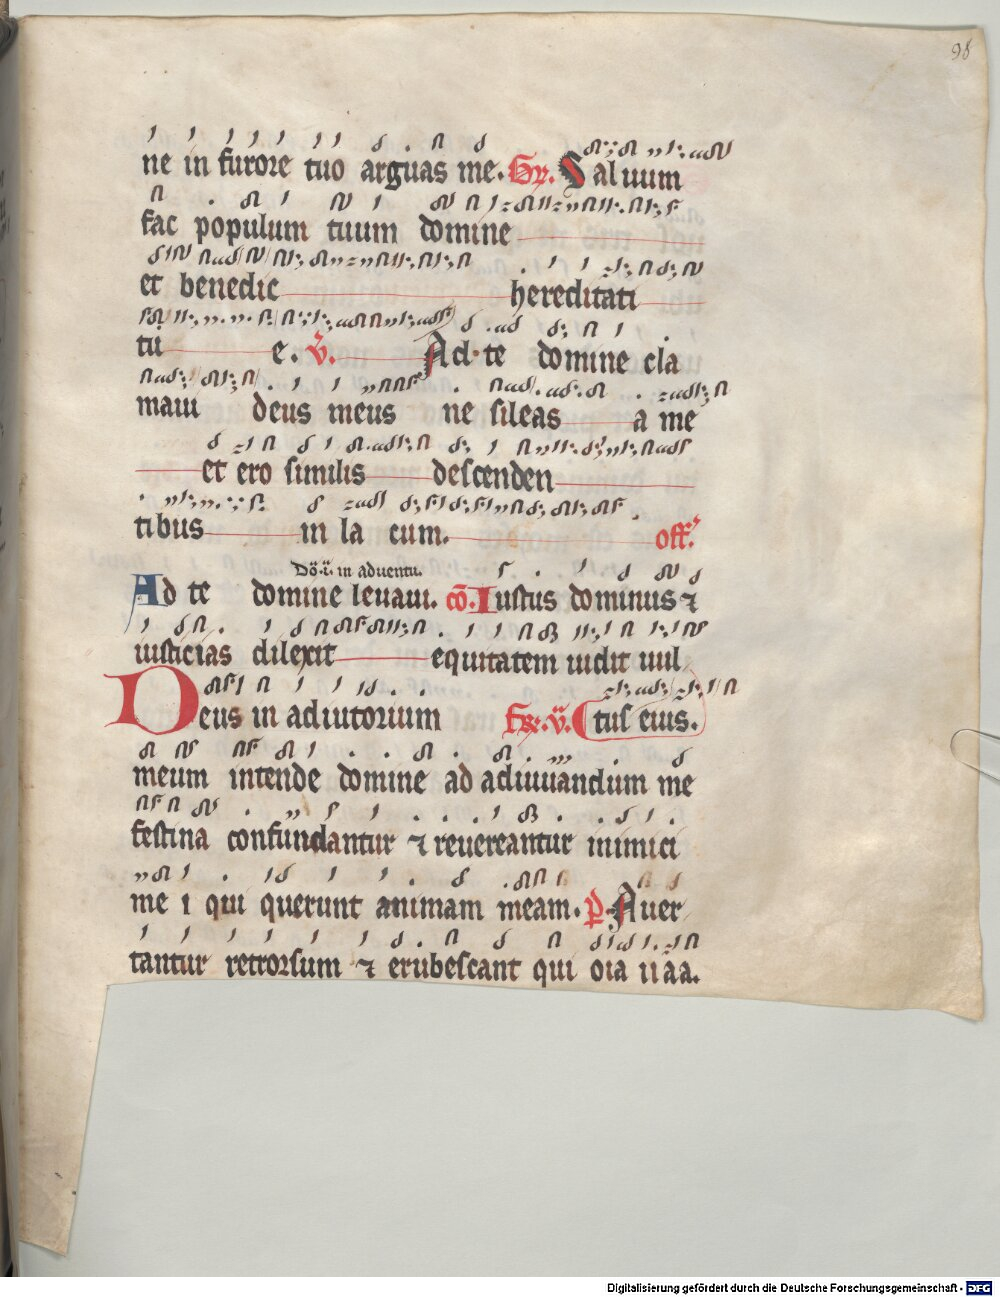 98
ne in furore tuo arguas me. Gr. Saluum
fac populum tuum domine
et benedic hereditati
tu e. v. Ad te domine cla
maui deus meus ne sileas a me
et ero similis descenden
tibus in la cum. off.
Do. ii. in aduentu.
Ad te domine leuaui. cō. Iustus dominus ⁊
iusticias dilexit equitatem uidit uul
Deus in adiutorium tus eius.
meum intende domine ad adiuuandum me
festina confundantur ⁊ reuereantur inimici
me i qui querunt animam meam. p̄. Auer
tantur retrorsum ⁊ erubescant qui
Digitalisierung gefördert durch die Deutsche Forschungsgemeinschaft - DFG